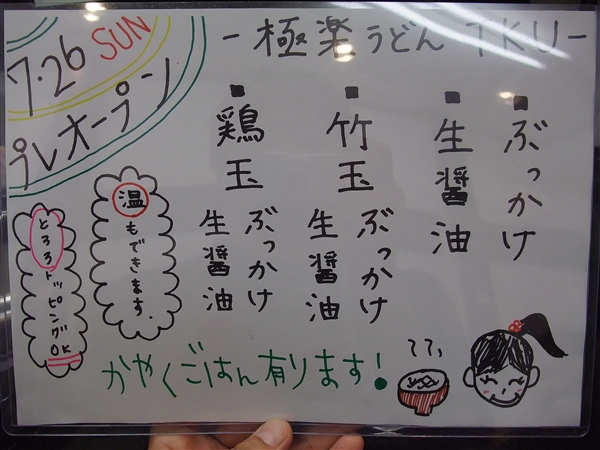 7・26 SUN
プレオープン
－極楽うどん TKU－
■ぶっかけ
■生醤油
■竹玉 ぶっかけ
生醤油
■鶏玉 ぶっかけ
生醤油
温もできます。
とろろトッピングOK
かやくごはん有ります!